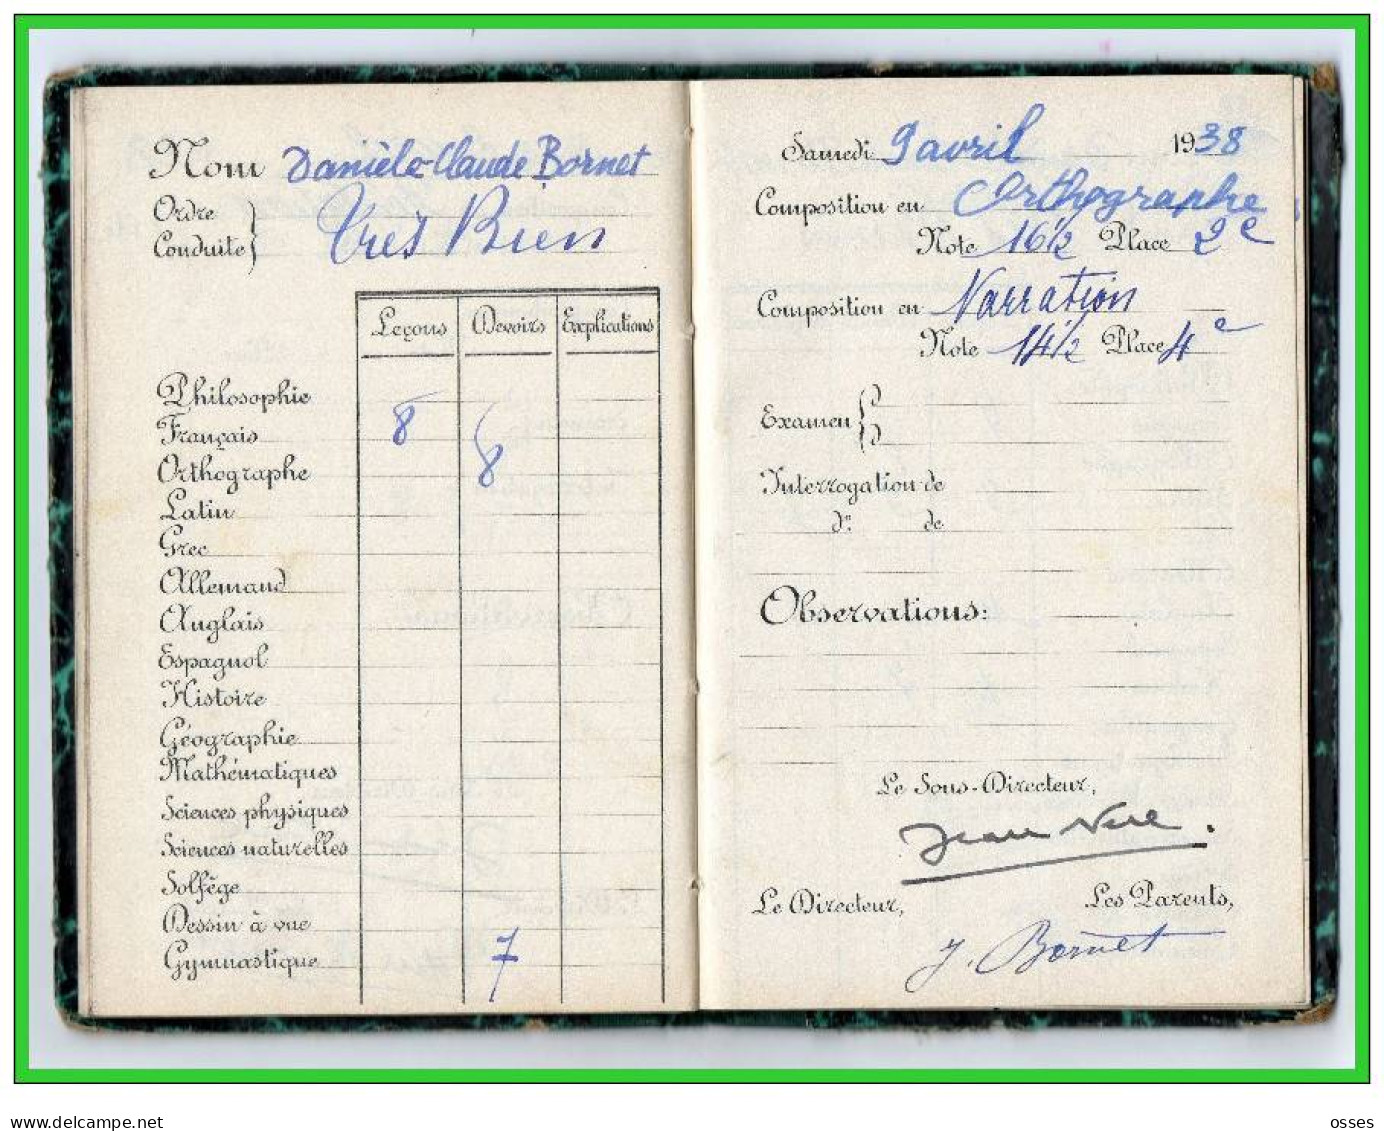 Nom Danièle-Claude Bornet
Ordre
Conduite
Très Bien
Leçons Devoirs Explications
Philosophie
Français 8
Orthographe 8
Latin
Grec
Allemand
Anglais
Espagnol
Histoire
Géographie
Mathématiques
Sciences physiques
Sciences naturelles
Solfège
Dessin à vue
Gymnastique 7
Samedi 9 avril 1938
Composition en Orthographe
Note 16 1/2 Place 2e
Composition en Narration
Note 14 1/2 Place 4e
Examen
Interrogation de
do de
Observations:
Le Sous-Directeur,
Jean
Le Directeur, Les Parents,
J. Bornet
delcampe.net
osses